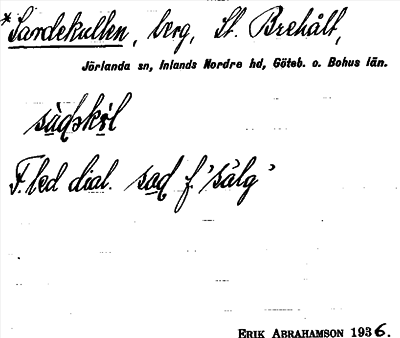 *Sardekullen, berg, St. Brehålt,
Jörlanda sn, Inlands Nordre hd, Göteb. o. Bohus län.
sàḍəkùl
F. led dial. saḍ f. 'sälg'
ERIK ABRAHAMSON 1936.